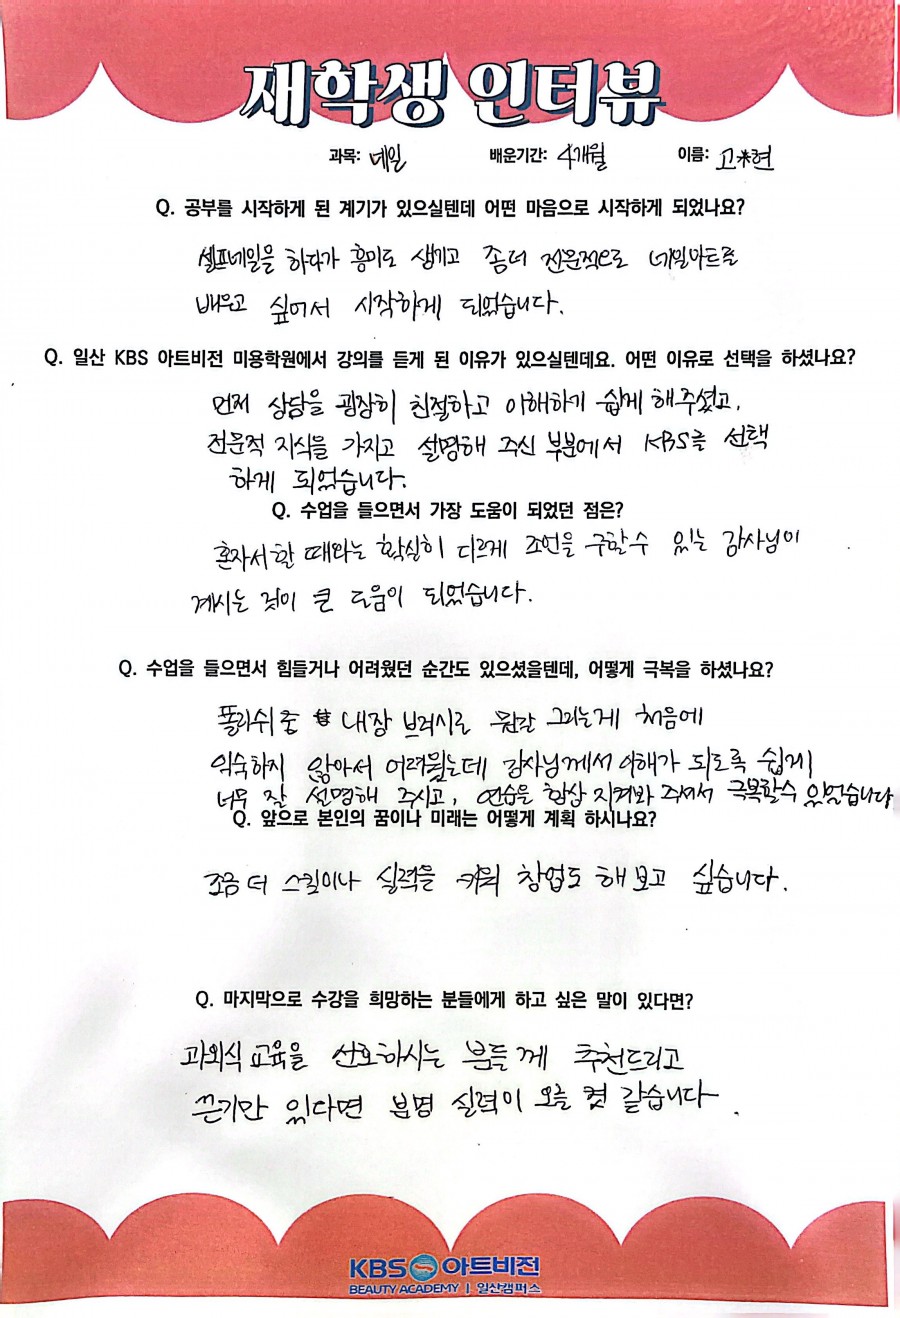 재학생 인터뷰
과목: 네일 배운기간: 4개월 이름: 고*현
Q. 공부를 시작하게 된 계기가 있으실텐데 어떤 마음으로 시작하게 되었나요?
셀프네일을 하다가 흥미도 생기고 좀더 전문적으로 네일아트를
배우고 싶어서 시작하게 되었습니다.
Q. 일산 KBS 아트비전 미용학원에서 강의를 듣게 된 이유가 있으실텐데요. 어떤 이유로 선택을 하셨나요?
먼저 상담을 굉장히 친절하고 이해하기 쉽게 해주셨고,
전문적 지식을 가지고 설명해 주신 부분에서 KBS를 선택
하게 되었습니다.
Q. 수업을 들으면서 가장 도움이 되었던 점은?
혼자서 할 때와는 확실히 다르게 조언을 구할수 있는 강사님이
계시는 것이 큰 도움이 되었습니다.
Q. 수업을 들으면서 힘들거나 어려웠던 순간도 있으셨을텐데, 어떻게 극복을 하셨나요?
폴리쉬 중 내장 브러시로 뭔갈 그리는게 처음에
익숙하지 않아서 어려웠는데 강사님께서 이해가 되도록 쉽게
너무 잘 설명해 주시고, 연습을 항상 지켜봐 주셔서 극복할수 있었습니다
Q. 앞으로 본인의 꿈이나 미래는 어떻게 계획 하시나요?
조금 더 스킬이나 실력을 키워 창업도 해보고 싶습니다.
Q. 마지막으로 수강을 희망하는 분들에게 하고 싶은 말이 있다면?
과외식 교육을 선호하시는 분들께 추천드리고
끈기만 있다면 분명 실력이 오를 것 같습니다.
KBS 아트비전
BEAUTY ACADEMY | 일산캠퍼스